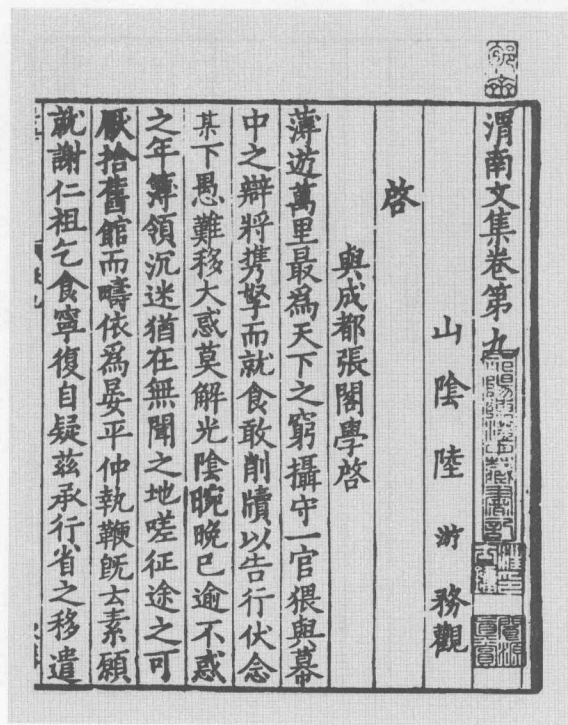 渭南文集卷第九
山陰陸游務觀
啓
與成都張閣學啓
薄遊萬里最爲天下之窮攝守一官猥與幕
中之辯將攜孥而就食敢削牘以告行伏念
某下愚難移大惑莫解光陰晼晚已逾不惑
之年簿領沉迷猶在無聞之地嗟征途之可
厭捨舊館而疇依爲晏平仲執鞭旣云素願
就謝仁祖乞食寧復自疑茲承行省之移遣